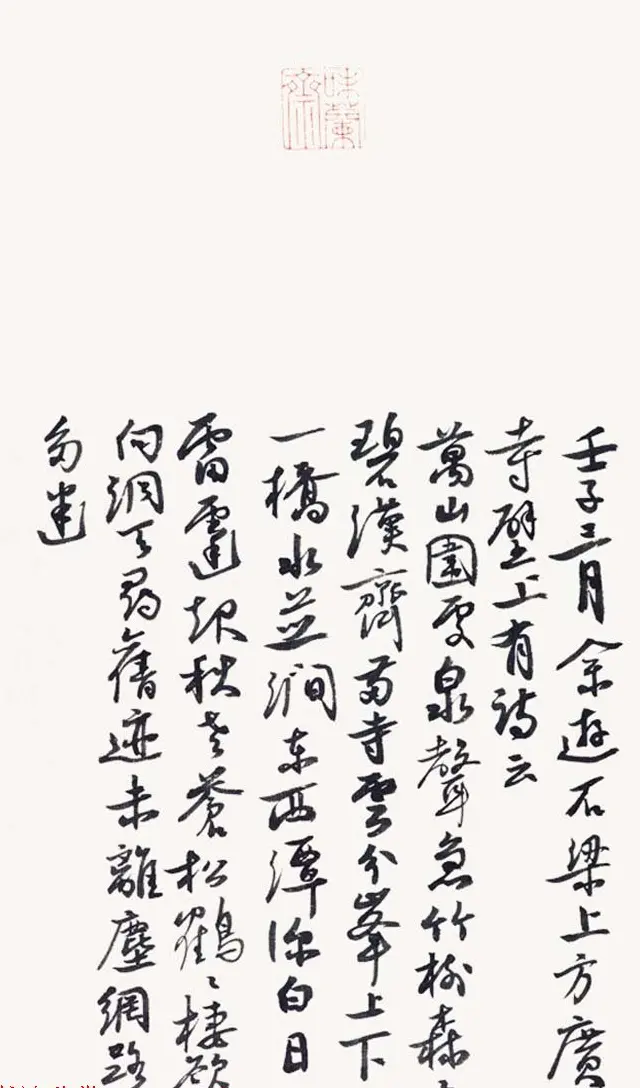 味蘭齋
壬子三月余遊石梁上方廣
寺壁上有詩云
萬山圍處泉聲急竹樹森
碧漢齊當寺雲分峯上下
一橋水並澗東西潭深白日
雷霆起秋老蒼松棲欲
向洞天尋舊迹未離塵網路
多迷